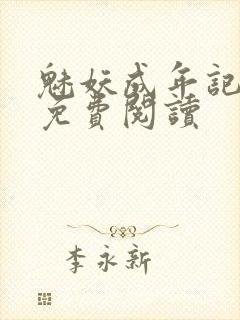 魅妖成年記
免費閱讀
李永新